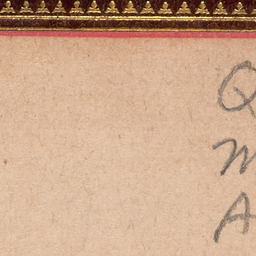 Q
M
A